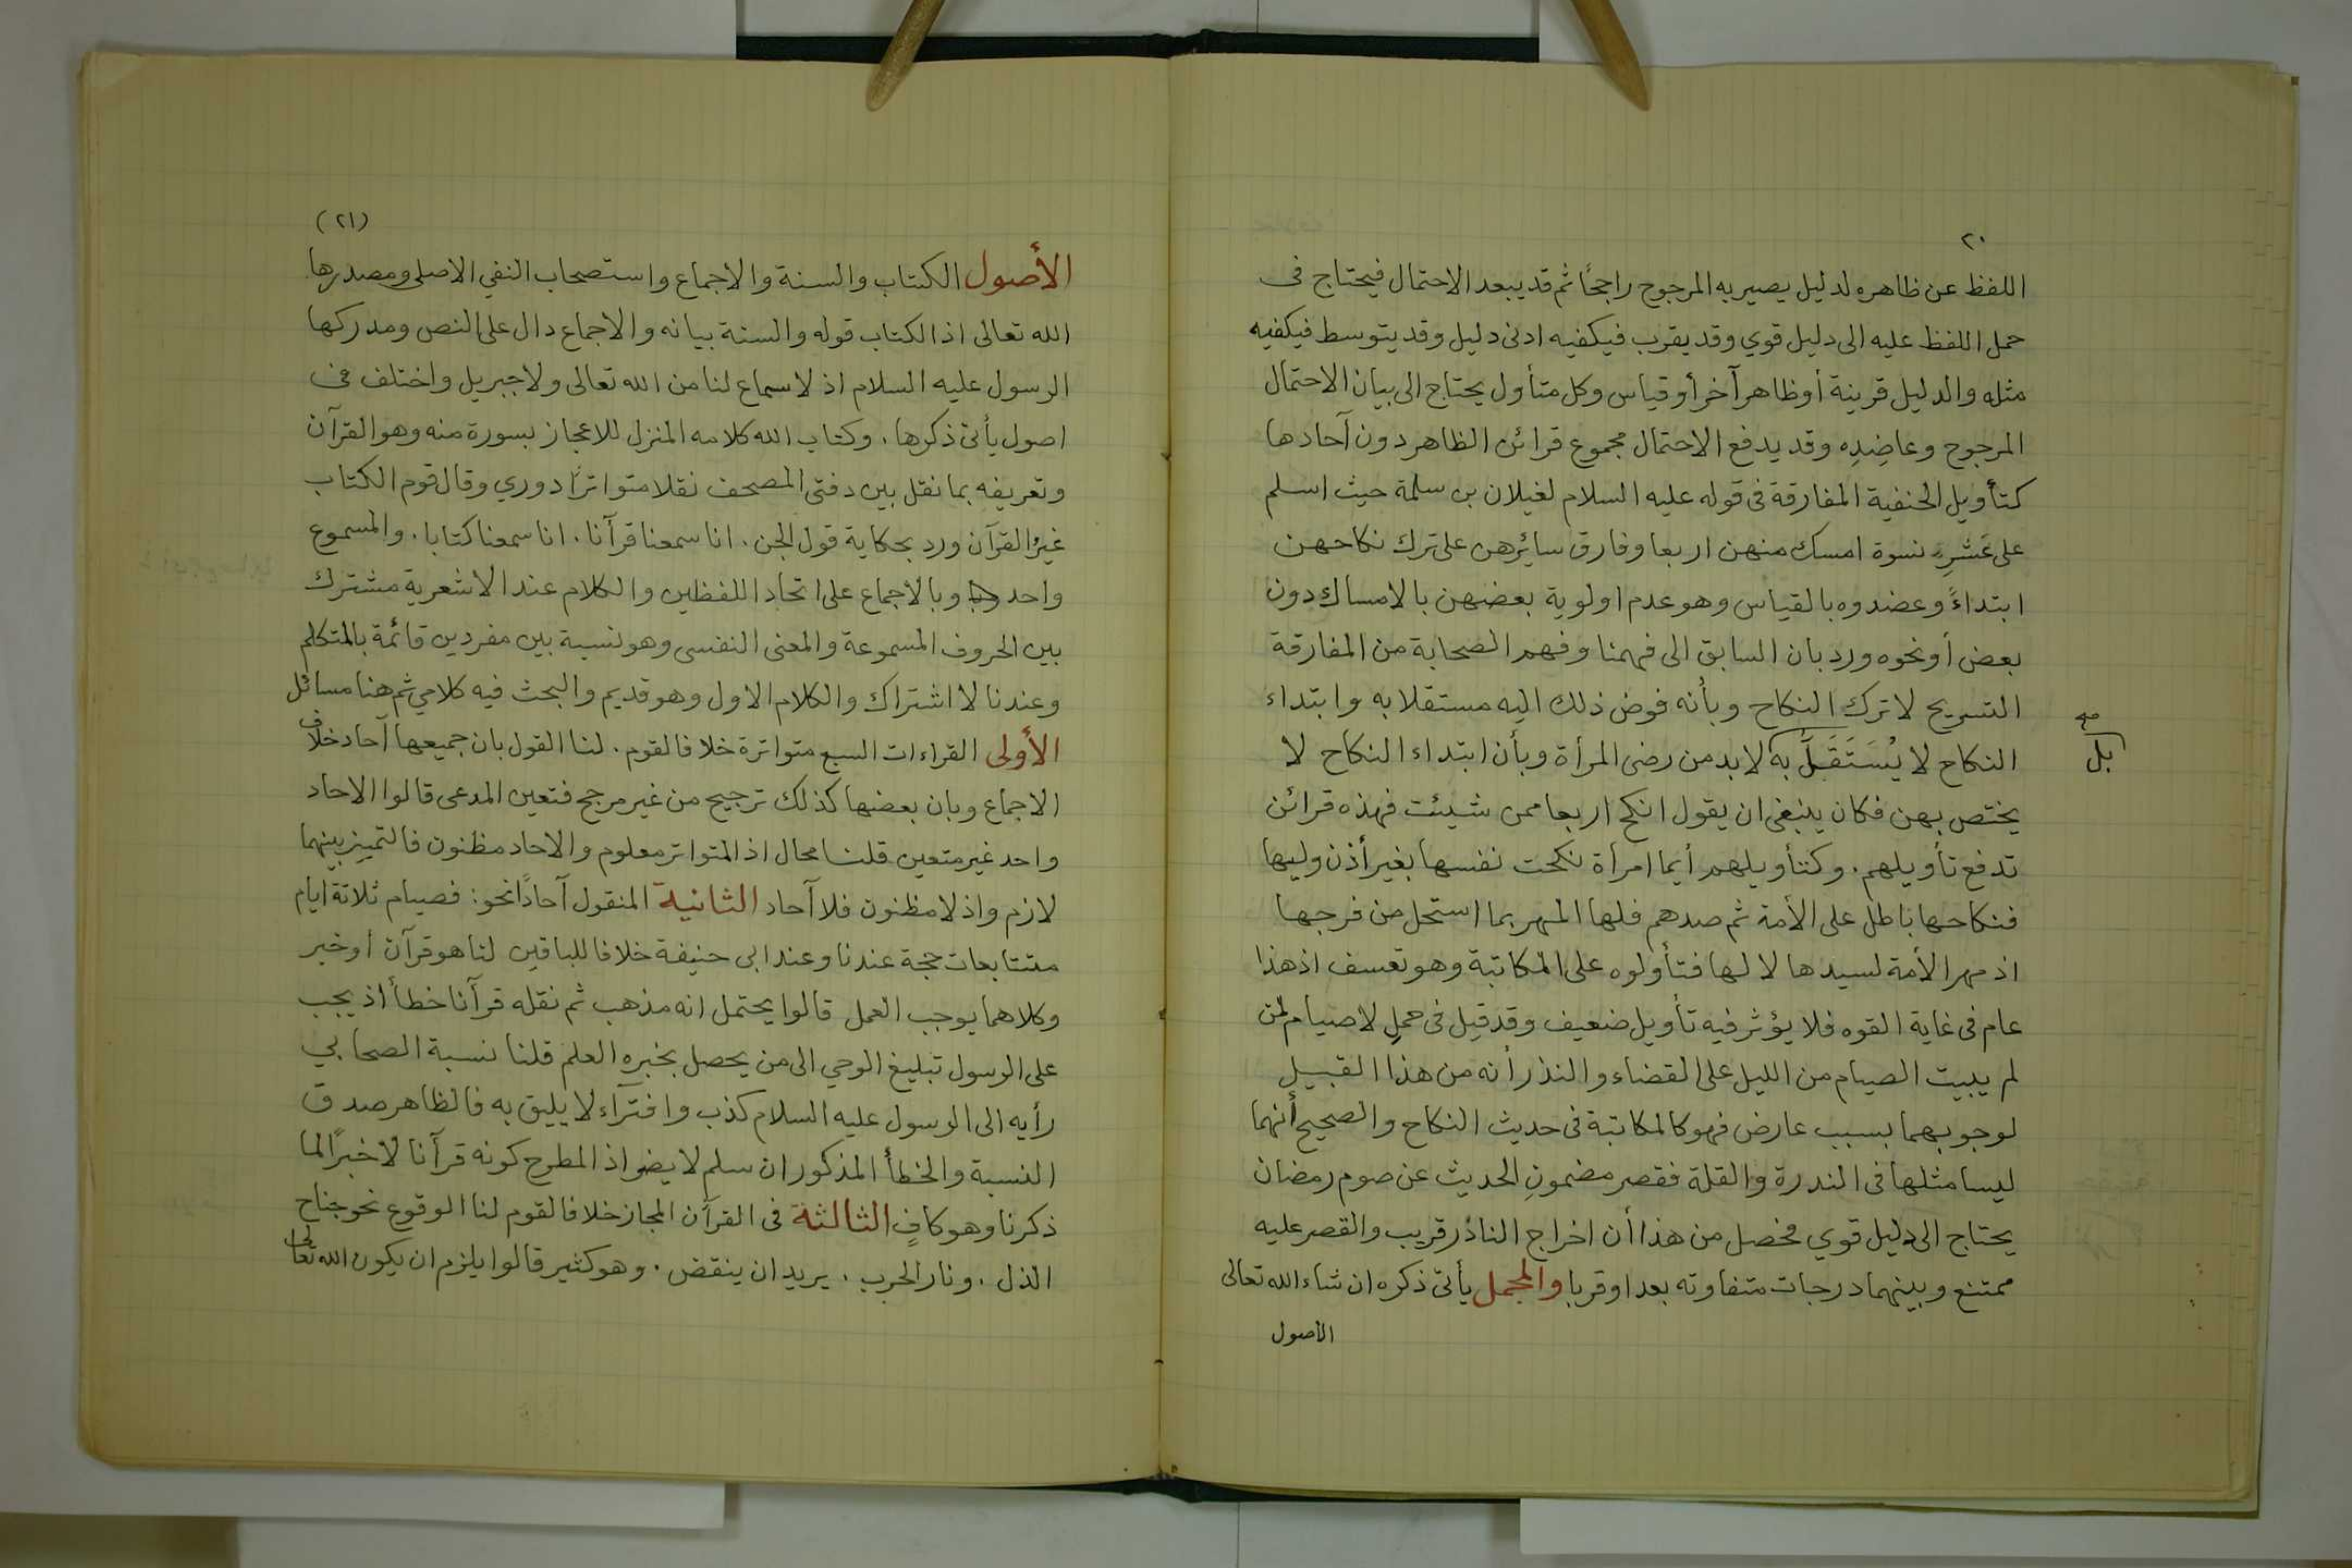 ٢٠
اللفظ عن ظاهره لدليل يصير به المرجوح راجحًا ثم قد يبعد الاحتمال فيحتاج فى
حمل اللفظ عليه الى دليل قوي وقد يقرب فيكفيه ادنى دليل وقد يتوسط فيكفيه
مثله والدليل قرينة أو ظاهر آخر أو قياس وكل متأول يحتاج الى بيان الاحتمال
المرجوح وعاضِدِه وقد يدفع الاحتمال مجموع قرائن الظاهر دون آحادها
كتأويل الحنفية المفارقة فى قوله عليه السلام لغيلان بن سلمة حيث اسلم
على عَشرِ نسوة امسك منهن اربعا وفارق سائرهن على ترك نكاحهن
ابتداءً وعضدوه بالقياس وهو عدم اولوية بعضهن بالامساك دون
بعض أو نحوه ورد بان السابق الى فهمنا وفهم الصحابة من المفارقة
التسريح لا ترك النكاح وبأنه فوض ذلك اليه مستقلا به وابتداء
النكاح لا يُسَتَقَلَّ به لابد من رضى المرأة وبأن ابتداء النكاح لا
بل
صح
يختص بهن فكان ينبغى ان يقول انكح اربعا ممن شيئت فهذه قرائن
تدفع تأويلهم. وكتأويلهم أيما امرأة نكحت نفسها بغير أذن وليها
فنكاحها باطل على الأمة ثم صدهم فلها المهر بما استحل من فرجها
اذ مهر الأمة لسيدها لا لها فتأولوه على المكاتبة وهو تعسف اذ هذا
عام فى غاية القوه فلا يؤثر فيه تأويل ضعيف وقد قيل فى حمل لا صيام لمن
لم يبيت الصيام من الليل على القضاء والنذر أنه من هذا القبيل
لوجوبهما بسبب عارض فهو كالمكاتبة فى حديث النكاح والصحيح أنهما
ليسا مثلها فى الندرة والقلة فقصر مضمونِ الحديث عن صوم رمضان
يحتاج الى دليل قوي فحصل من هذا أن اخراج النادر قريب والقصر عليه
ممتنع وبينهما درجات متفاوته بعدا وقربا والمجمل يأتى ذكره ان شاء الله تعالى
الأصول
(٢١)
الأصول الكتاب والسنة والاجماع واستصحاب النفي الاصلى ومصدرها
الله تعالى اذ الكتاب قوله والسنة بيانه والاجماع دال على النص ومدركها
الرسول عليه السلام اذ لا سماع لنا من الله تعالى ولا جبريل واختلف فى
اصول يأتى ذكرها. وكتاب الله كلامه المنزل للاعجاز بسورة منه وهو القرآن
وتعريفه بما نقل بين دفتى المصحف نقلا متواترًا دوري وقال قوم الكتاب
غيرُ القرآن ورد بحكاية قول الجن. انا سمعنا قرآنا. انا سمعنا كتابا. والمسموع
واحد وبالأجماع على اتحاد اللفظين والكلام عند الاشعرية مشترك
بين الحروف المسموعة والمعنى النفسى وهو نسبة بين مفردين قائمة بالمتكلم
وعندنا لا اشتراك والكلام الاول وهو قديم والبحث فيه كلامي ثم هنا مسائل
الأولى القراءات السبع متواترة خلافا لقوم. لنا القول بان جميعها آحاد خلاف
الاجماع وبان بعضها كذلك ترجيح من غير مرجح فتعين المدعى قالوا الاحاد
واحد غير متعين قلنا محال اذ المتواتر معلوم والاحاد مظنون فالتمييز بينهما
لازم واذ لا مظنون فلا آحاد الثانية المنقول آحادًا نحو: فصيام ثلاثة ايام
متتابعات حجة عندنا وعند ابى حنيفة خلافا للباقين لنا هو قرآن أو خبر
وكلاهما يوجب العمل قالوا يحتمل انه مذهب ثم نقله قرآنا خطأ اذ يجب
على الرسول تبليغ الوحي الى من يحصل بخبره العلم قلنا نسبة الصحابي
رأيه الى الرسول عليه السلام كذب وافتراء لا يليق به فالظاهر صدق
النسبة والخطأ المذكور ان سلم لا يضر اذ المطرح كونه قرآنا لا خبرًا لما
ذكرنا وهو كافٍ الثالثة فى القرآن المجاز خلافا لقوم لنا الوقوع نحو جناح
الذل. ونار الحرب. يريد ان ينقض. وهو كثير قالوا يلزم ان يكون الله تعالى